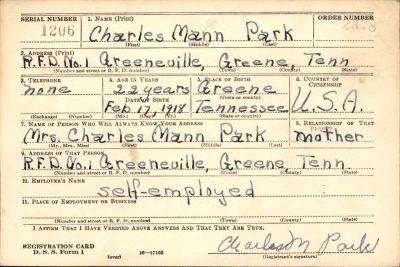 SERIAL NUMBER 1. NAME (Print) ORDER NUMBER
1206 Charles Mann Park
(First) (Middle) (Last)
2. ADDRESS (Print)
R.F.D. No. 1 Greeneville, Greene, Tenn
(Number and street or R. F. D. number) (Town) (County) (State)
3. TELEPHONE 4. AGE IN YEARS 5. PLACE OF BIRTH 6. COUNTRY OF CITIZENSHIP
none 22 years Greene
DATE OF BIRTH (Town or county)
Feb. 17, 1918 Tennessee U.S.A.
(Exchange) (Number) (Mo.) (Day) (Yr.) (State or country)
7. NAME OF PERSON WHO WILL ALWAYS KNOW YOUR ADDRESS 8. RELATIONSHIP OF THAT PERSON
Mrs. Charles Mann Park mother
(Mr., Mrs., Miss) (First) (Middle) (Last)
9. ADDRESS OF THAT PERSON
R.F.D. No. 1 Greeneville, Greene, Tenn.
(Number and street or R. F. D. number) (Town) (County) (State)
10. EMPLOYER'S NAME
self-employed
11. PLACE OF EMPLOYMENT OR BUSINESS
(Number and street or R. F. D. number) (Town) (County) (State)
I AFFIRM THAT I HAVE VERIFIED ABOVE ANSWERS AND THAT THEY ARE TRUE.
REGISTRATION CARD
D. S. S. Form 1 (over) 16—17105
Charles M Park
(Registrant's signature)